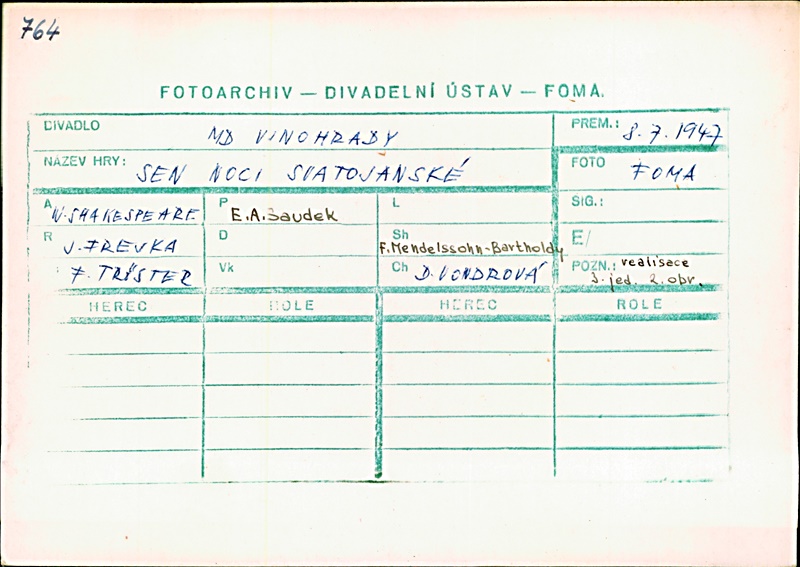 764
FOTOARCHIV — DIVADELNÍ ÚSTAV — FOMA.
DIVADLO MD VINOHRADY PREM.: 8.7.1947
NÁZEV HRY: SEN NOCI SVATOJANSKÉ FOTO FOMA
A W. SHAKESPEARE P E.A. Saudek L SIG.:
R J. FREJKA D Sh F. Mendelssohn-Bartholdy E/
F. TRÖSTER Vk Ch D. VONDROVÁ POZN.: realisace
3. jed. 2. obr.
HEREC ROLE HEREC ROLE